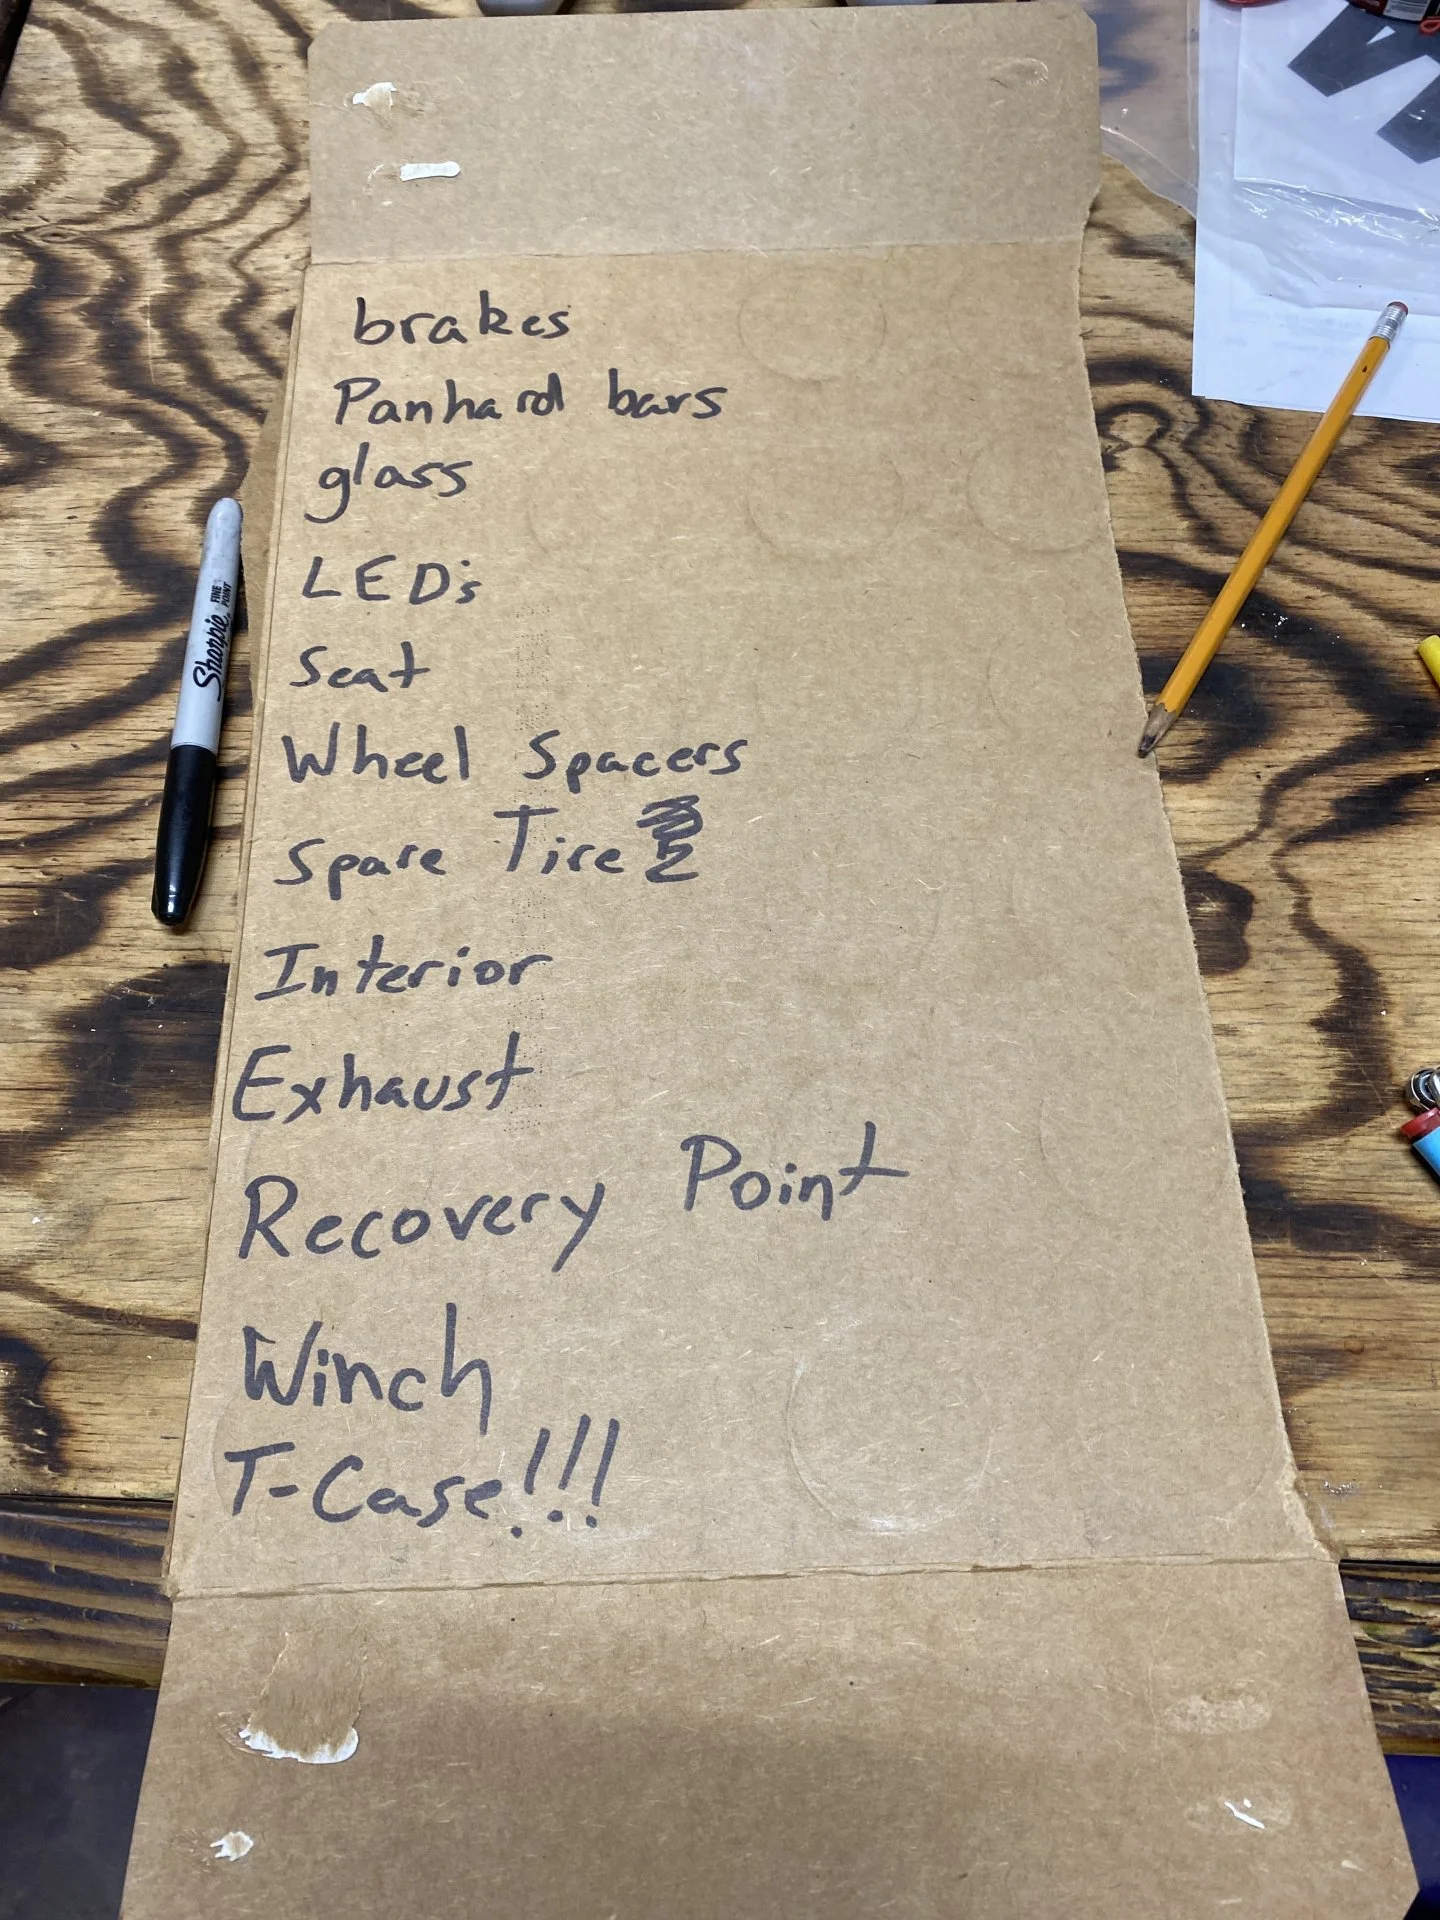 brakes
Panhard bars
glass
LED's
Seat
Wheel Spacers
Spare Tire 2
Interior
Exhaust
Recovery Point
Winch
T-Case!!!
Sharpie
FINE POINT